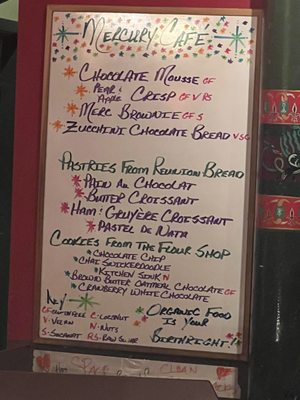 Mercury Cafe
Chocolate Mousse GF
Pear & Apple Crisp GF V RS
Merc Brownie GF S
Zucchini Chocolate Bread V SG
Pastries From Reunion Bread
Pain Au Chocolat
Butter Croissant
Ham & Gruyère Croissant
Pastel De Nata
Cookies From The Flour Shop
Chocolate Chip
Chai Snickerdoodle
Kitchen Sink N
Brown Butter Oatmeal Chocolate GF
Cranberry White Chocolate
Key
GF-Gluten Free C-Coconut
V-Vegan N-Nuts
S-Sucanat RS-Raw Sugar
Organic Food
Is Your
Birthright!